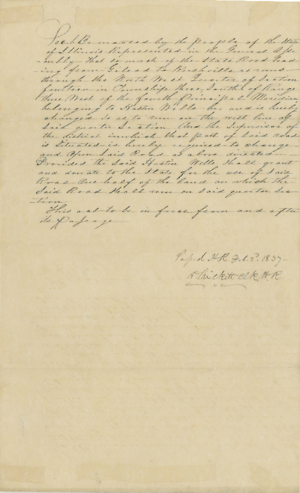 Sec 1 Be it enacted by the People of the State
of Illinois Represented in the General Ass
embly That so much of the State Road lea
ding from to Rushville as runs
through the North West Quarter of Section
fourteen in Township three, South of Range
One West of the fourth Principal Meridian
belonging to Wells be, and is hereby
changed so as to run on the west line of
Said quarter Section. And the Supervisor of
the district in which that part of said road
is situated is hereby required to change
and Open Said Road as above directed
Provided the Said Wells shall grant
and donate to the State for the use of Said
Road One half of the land on which the
Said Road shall run on Said quarter Sec
tion.
This act to be in force from and after
its passage
Passed H.R. Feb. 1837
Prickett Clk H R